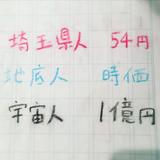 埼玉県人 54円
地底人 時価
宇宙人 1億円